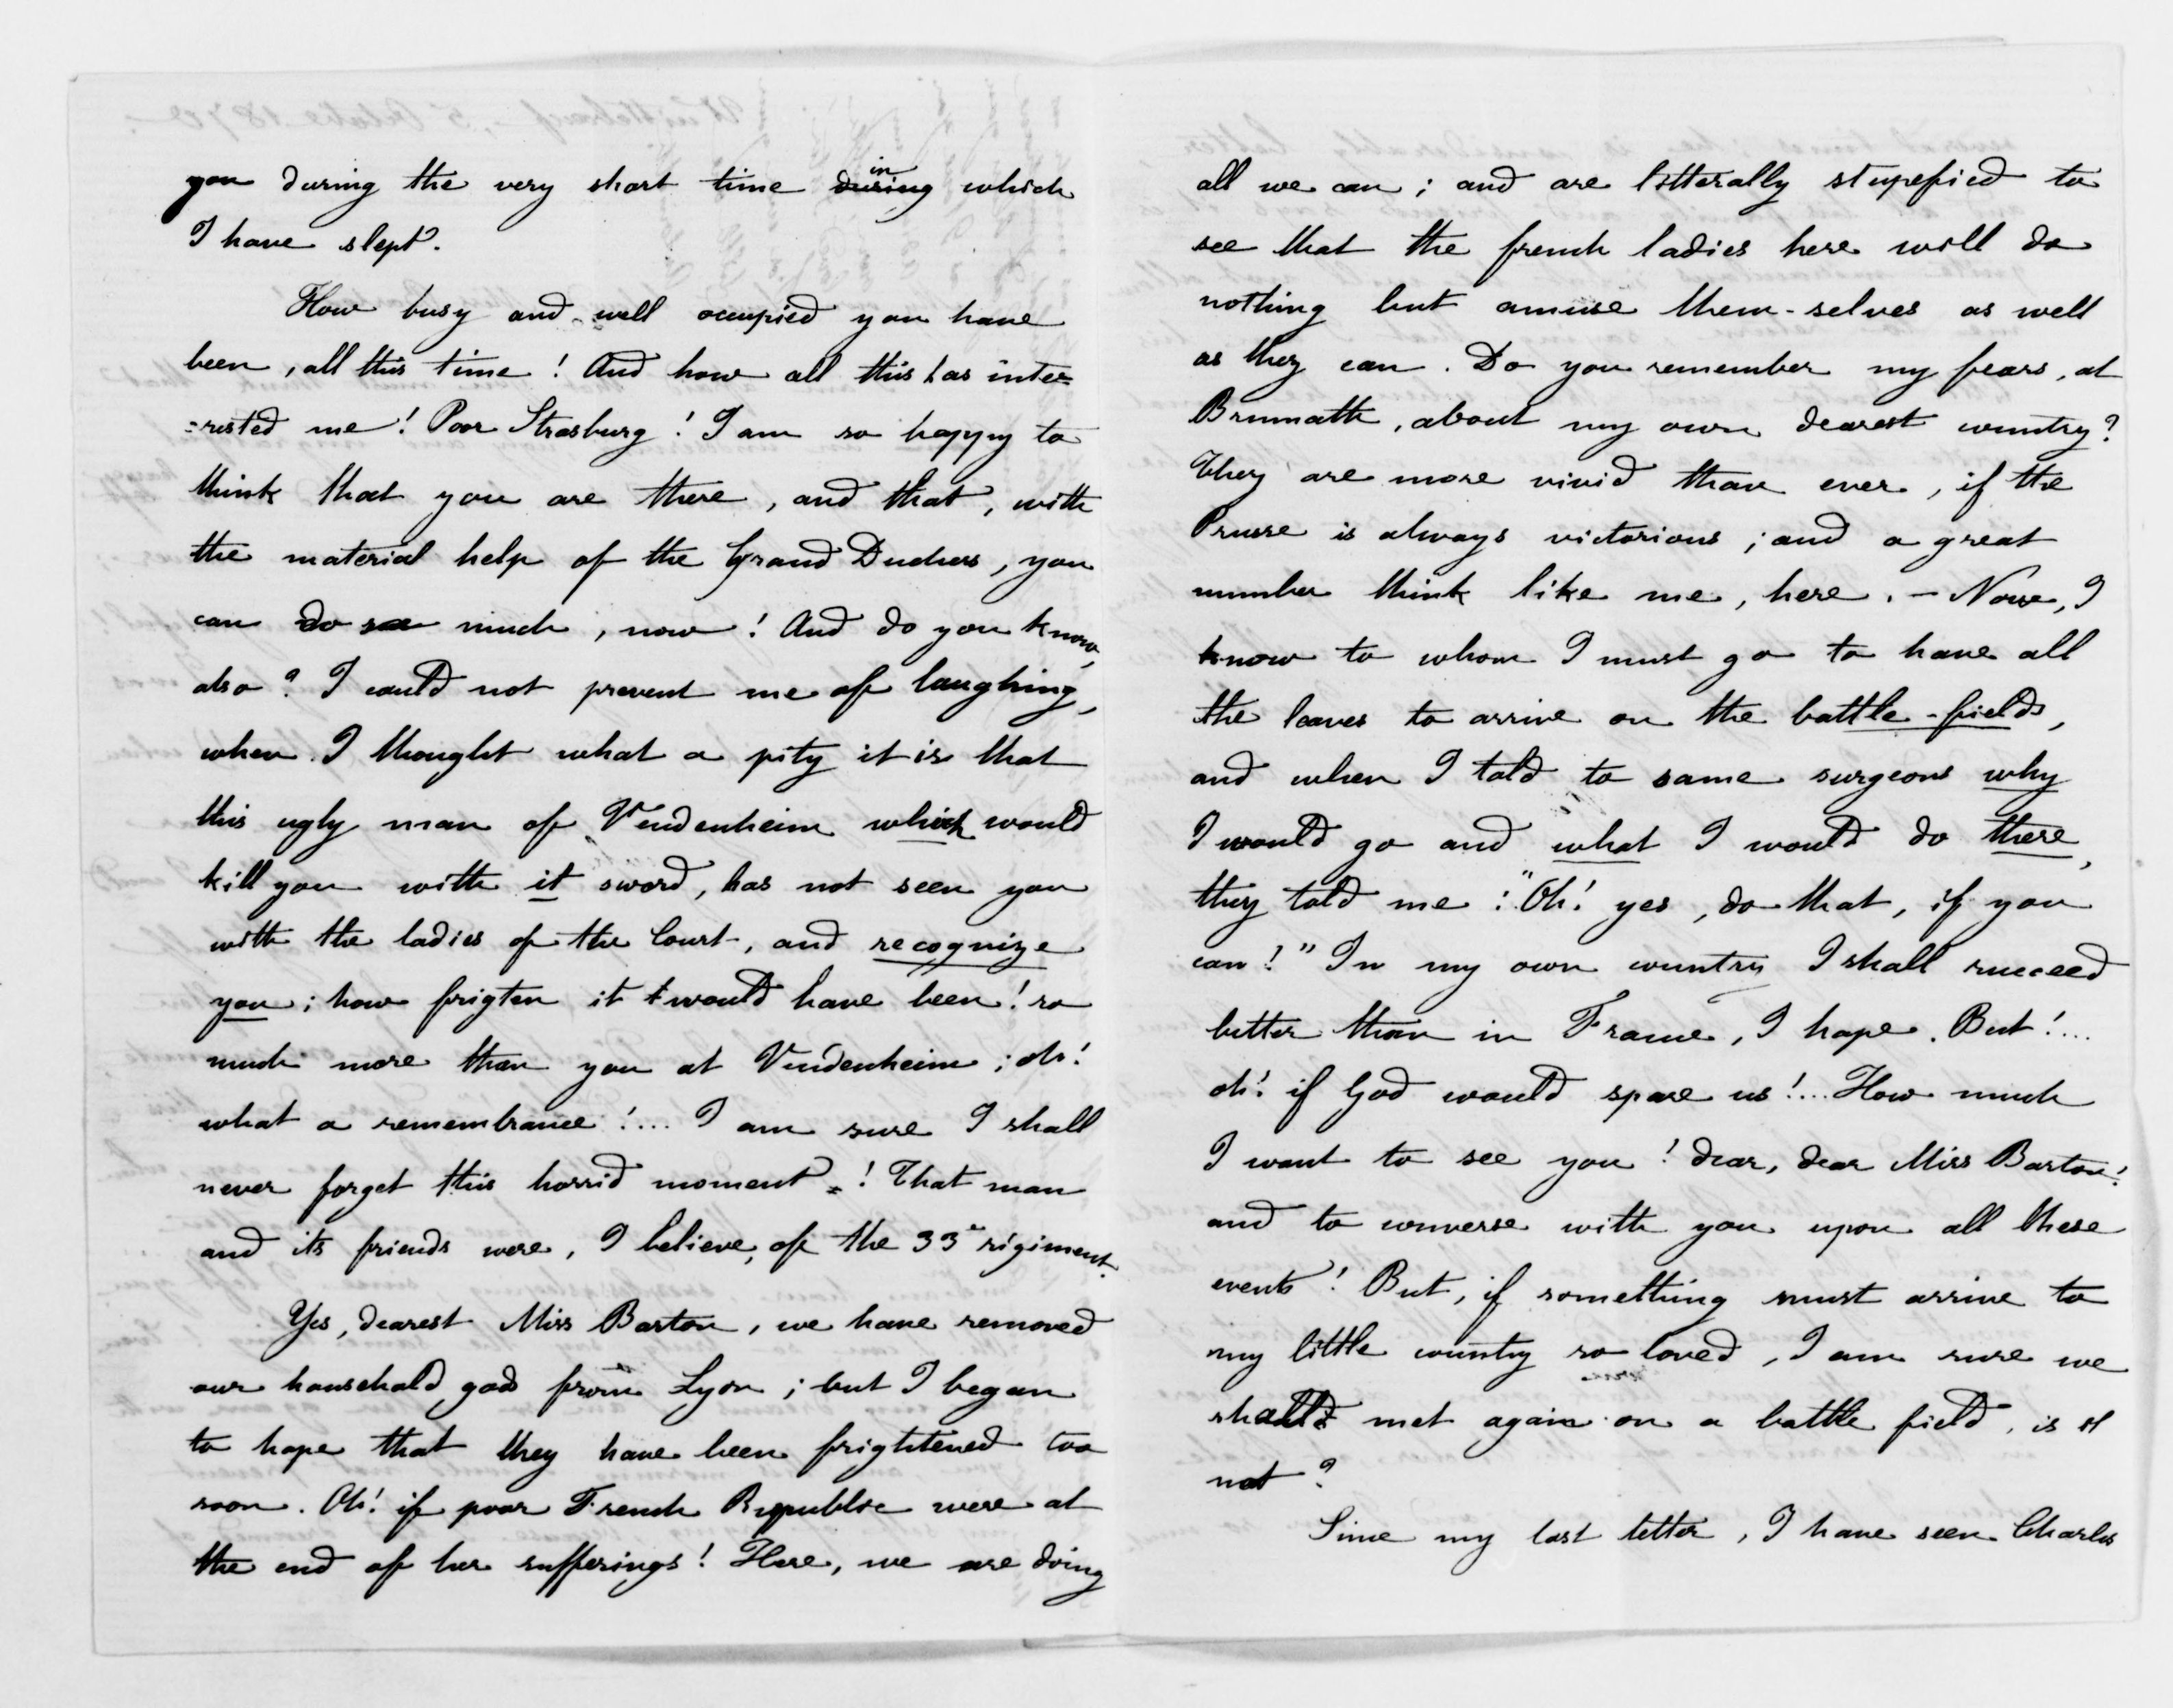 you during the very short time during in which
I have slept.
How busy and well occupied you have
been, all this time! And how all this has inter=
=rested me! Poor Strasburg! I am so happy to
think that you are there, and that, with
the material help of the Grand Duchess, you
can do so much, now! And do you know,
also? I could not prevent me of laughing,
when I thought what a pity it is that
this ugly man of Vendenheim which would
kill you with it sword, has not seen you
with the ladies of the Court, and recognize
you; how frigten it would have been! so
much more than you at Vendenheim; oh!
what a remembrance!... I am sure I shall
never forget this horrid moment! That man
and its friends were, I believe, of the 33e rigiment.
Yes, dearest Miss Barton, we have removed
our household gods from Lyon; but I began
to hope that they have been frightened too
soon. Oh! if poor French Republic were at
the end of her sufferings! Here, we are doing
all we can; and are litterally stupefied to
see that the french ladies here will do
nothing but amuse them-selves as well
as they can. Do you remember my fears, at
Brumath, about my own dearest country?
They are more vivid than ever, if the
Prusse is always victorious; and a great
number think like me, here. - Now, I
know to whom I must go to have all
the leaves to arrive on the battle-fields,
and when I told to some surgeons why
I would go and what I would do there,
they told me: "Oh! yes, do that, if you
can!" In my own country I shall succeed
better than in France, I hope. But!...
oh! if God would spare us!... How much
I want to see you! dear, dear Miss Barton!
and to converse with you upon all these
events! But, if something must arrive to
my little country so loved, I am sure we
shall met again on a battle field, is it
not?
Since my last letter, I have seen Charles